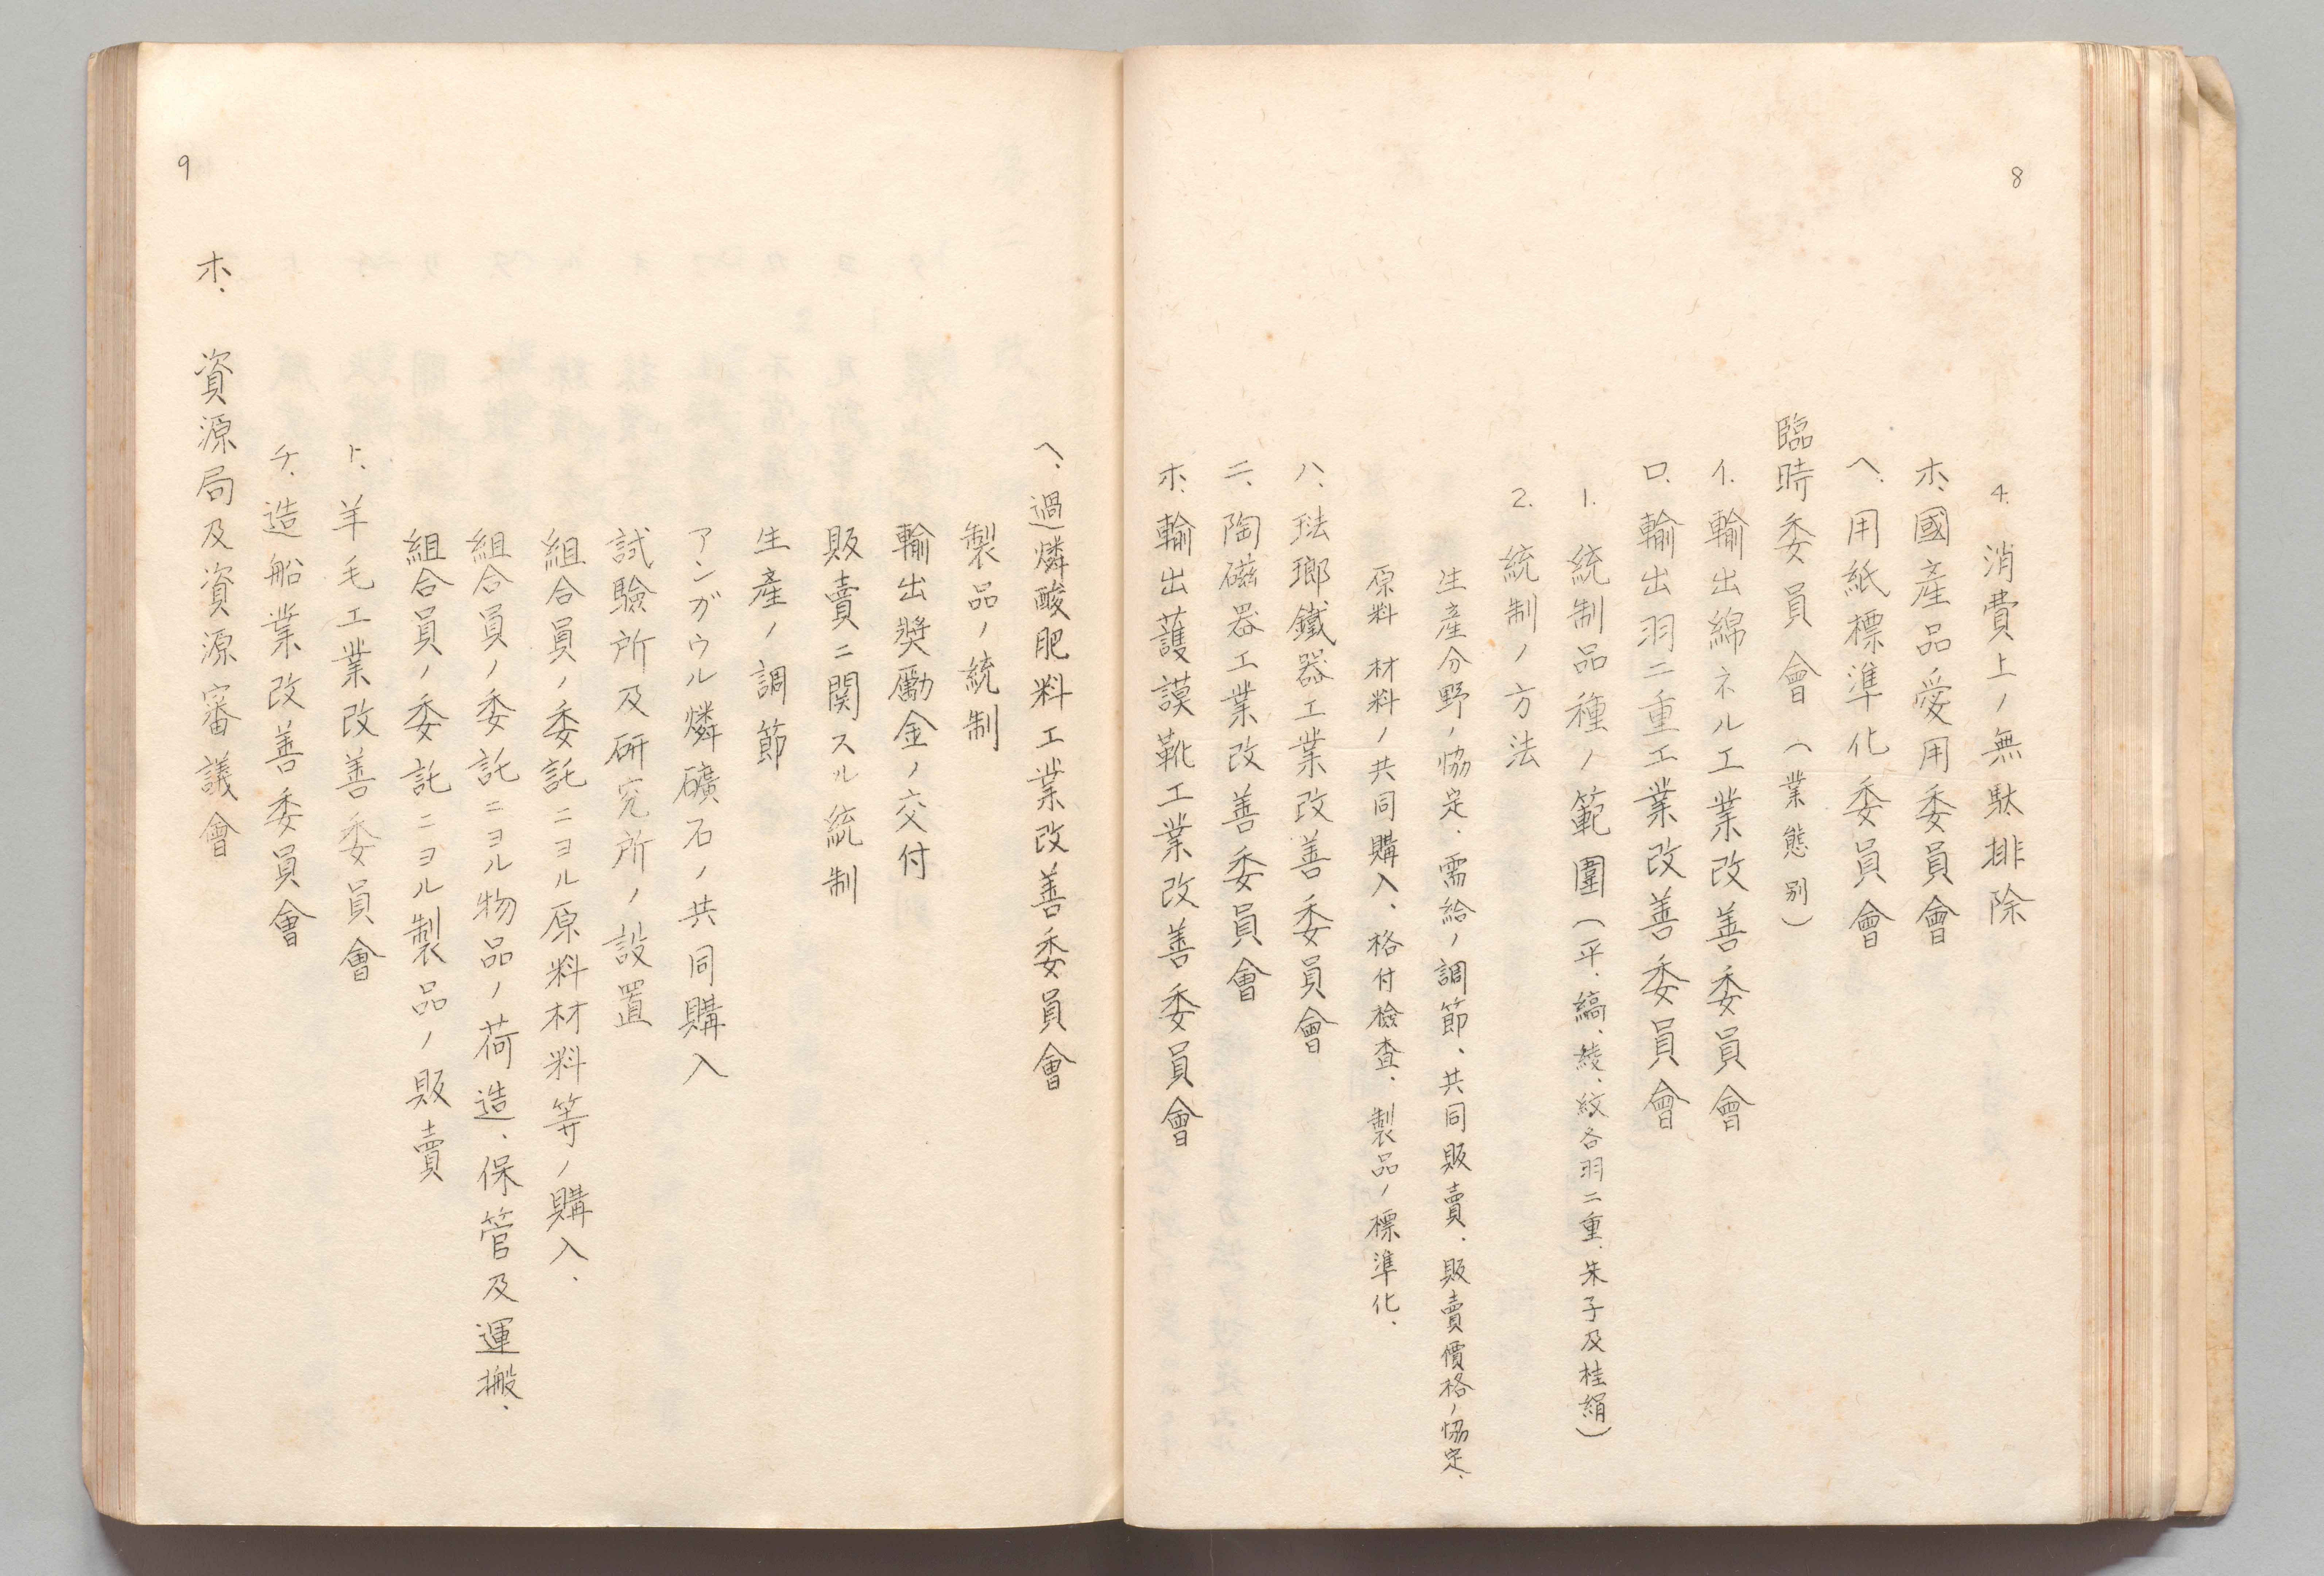 8
4. 消費上ノ無駄排除
ホ、國產品愛用委員會
ヘ、用紙標準化委員會
臨時委員會（業態別）
イ、輸出綿ネル工業改善委員會
ロ、輸出羽二重工業改善委員會
1. 統制品種ノ範圍（平、縞、綾、紋各羽二重、朱子及桂絹）
2. 統制ノ方法
生產分野ノ協定、需給ノ調節、共同販賣、販賣價格ノ協定、
原料 材料ノ共同購入、格付檢查、製品ノ標準化、
ハ、琺瑯鐵器工業改善委員會
ニ、陶磁器工業改善委員會
ホ、輸出護謨靴工業改善委員會
ヘ、過燐酸肥料工業改善委員會
製品ノ統制
輸出奬勵金ノ交付
販賣ニ関スル統制
生產ノ調節
アンガウル燐礦石ノ共同購入
試驗所及研究所ノ設置
組合員ノ委託ニヨル原料材料等ノ購入、
組合員ノ委託ニヨル物品ノ荷造、保管及運搬、
組合員ノ委託ニヨル製品ノ販賣
ト、羊毛工業改善委員會
チ、造船業改善委員會
ホ、資源局及資源審議會
9